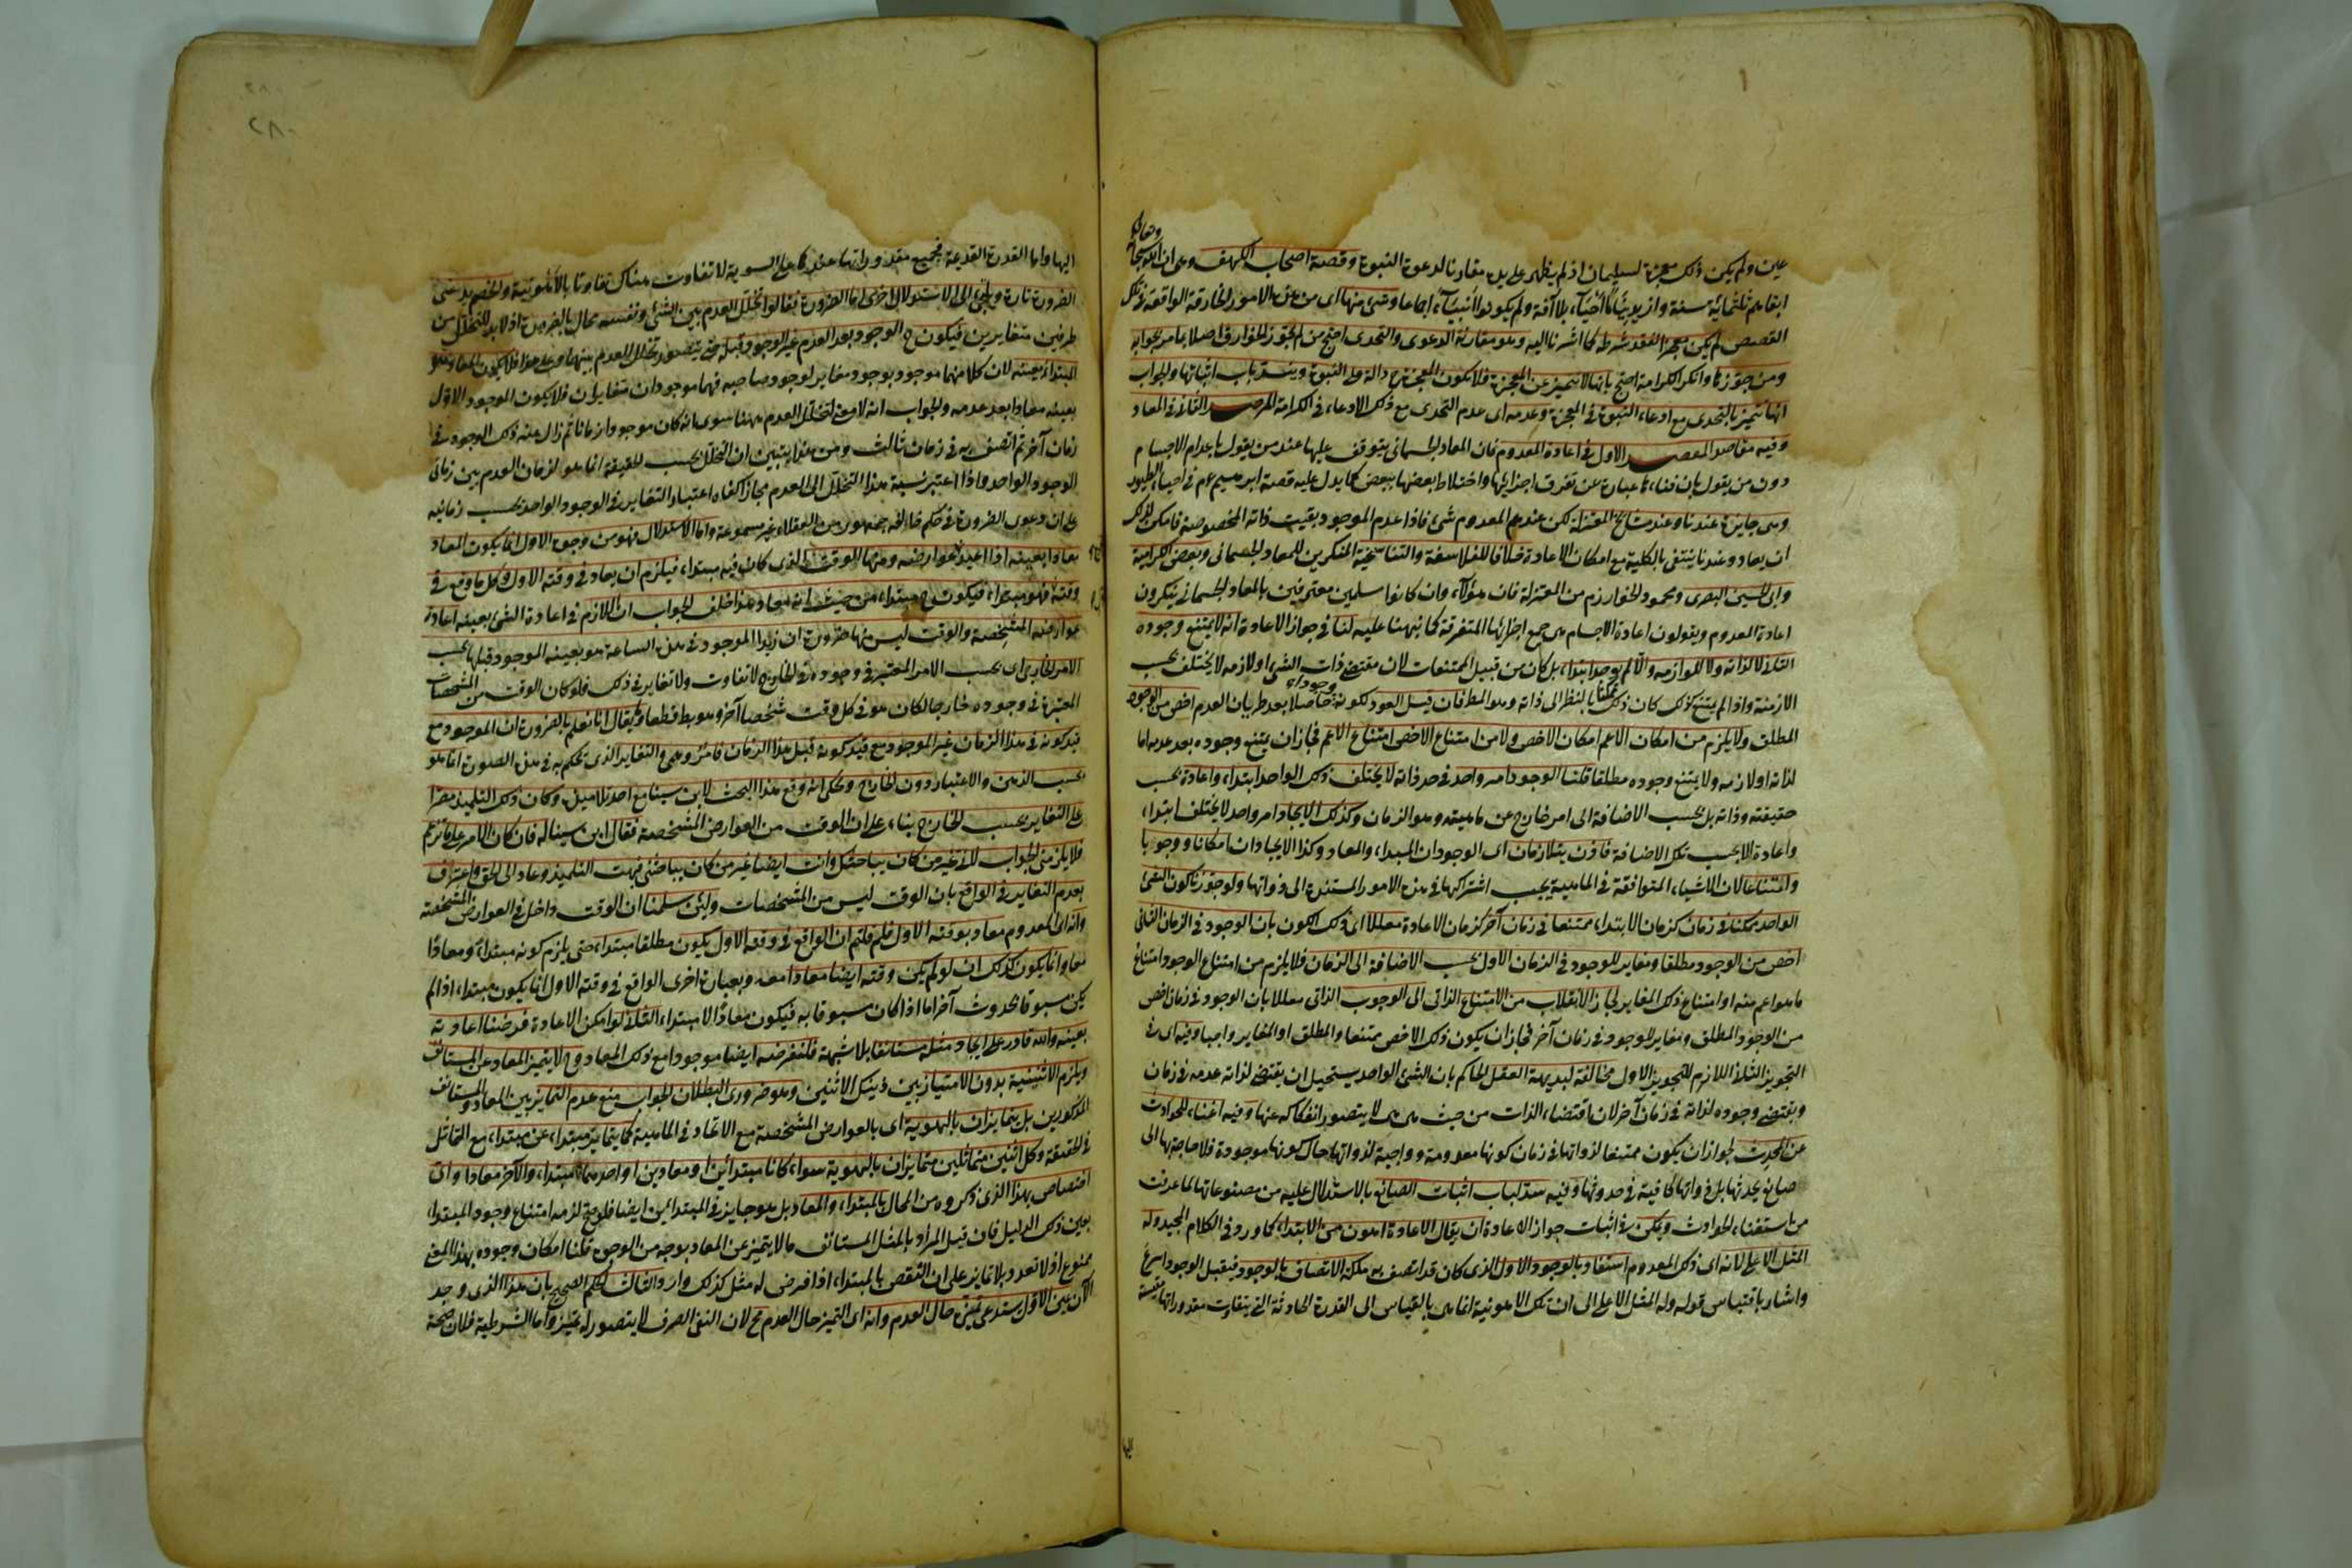 وتعالى
عين ولم يكن ذلك معجزة لسليمان اذ لم يظهر على يده مقارنا لدعوة النبوة وقصة اصحاب الكهف وهى ان الله سبحانه
ابقاهم ثلثمائة سنة وازيد نياما احياء بلا آفة ولم يكونوا انبياء اجماعا وشئ منها اى من هذه الامور الخارقة الواقعة فى تلك
القصص لم يكن معجزا لفقد شرطه كما اشرنا اليه وهو مقارنة الدعوى والتحدى احتج من لم يجوز الخوارق اصلا بما مر بجوابه
ومن جوزها وانكر الكرامة احتج بانها لا تتميز عن المعجزة فلا تكون المعجزة ح دالة على النبوة وينسد باب اثباتها والجواب
انها تتميز بالتحدى مع ادعاء النبوة فى المعجزة وعدمه اى عدم التحدى مع ذلك الادعاء فى الكرامة المرصد الثانى فى المعاد
وفيه مقاصد المقصد الاول فى اعادة المعدوم فان المعاد الجسمانى يتوقف عليها عند من يقول باعدام الاجسام
دون من يقول بان فناءها عبارة عن تفرق اجزائها واختلاط بعضها ببعض كما يدل عليه قصة ابرهيم عم فى احياء الطيور
وهى جايزة عندنا وعند مشايخ المعتزلة لكن عندهم المعدوم شئ فاذا عدم الموجود بقيت ذاته المخصوصة فامكن لذلك
ان يعاد وعندنا ينتفى بالكلية مع امكان الاعادة خلافا للفلاسفة والتناسخية المنكرين للمعاد الجسمانى وبعض الكرامية
وابى الحسين البصرى ومحمود الخوارزمى من المعتزلة فان هؤلاء وان كانوا مسلمين معترفين بالمعاد الجسمانى ينكرون
اعادة المعدوم ويقولون اعادة الاجسام هى جمع اجزائها المتفرقة كما نبهنا عليه لنا فى جواز الاعادة انه لا يمتنع وجوده
الثانى لذاته ولا للوازمه والا لم يوجد ابتداء بل كان من قبيل الممتنعات لان مقتضى ذات الشئ او لازمه لا يختلف بحسب
الازمنة واذا لم يمتنع كذلك كان ذلك ممكنا بالنظر الى ذاته وهو المط فان قيل العود لكونه وجودا حاصلا بعد طريان العدم اخص من الوجود
المطلق ولا يلزم من امكان الاعم امكان الاخص ولا من امتناع الاخص امتناع الاعم فجاز ان يمتنع وجوده بعد عدمه اما
لذاته او لازمه ولا يمتنع وجوده مطلقا قلنا الوجود امر واحد فى حد ذاته لا يختلف ذلك الواحد ابتداء واعادة بحسب
حقيقته وذاته بل بحسب الاضافة الى امر خارج عن ماهيته وهو الزمان وكذلك الايجاد امر واحد لا يختلف ابتداء
واعادة الا بحسب تلك الاضافة فاذن يتلازمان اى الوجودان المبدأ والمعاد وكذا الايجادان امكانا ووجوبا
وامتناعا لان الاشياء المتوافقة فى الماهية يجب اشتراكها فى هذه الامور المستندة الى ذواتها ولو جوزنا كون الشئ
الواحد ممكنا فى زمان كزمان الابتداء ممتنعا فى زمان آخر كزمان الاعادة معللا اى ذلك الكون بان الوجود فى الزمان الثانى
اخص من الوجود مطلقا ومغاير للوجود فى الزمان الاول بحسب الاضافة الى الزمان فلا يلزم من امتناع الوجود امتناع
ما هو اعم منه او امتناع ذلك المغاير لجاز الانقلاب من الامتناع الذاتى الى الوجوب الذاتى معللا بان الوجود فى زمان اخص
من الوجود المطلق ومغاير للوجود فى زمان آخر فجاز ان يكون ذلك الاخص ممتنعا والمطلق او المغاير واجبا وفيه اى فى
التجويز الثانى اللازم للتجويز الاول مخالفة لبديهة العقل الحاكم بان الشئ الواحد يستحيل ان يقتضى لذاته عدمه فى زمان
ويقتضى وجوده لذاته فى زمان آخر لان اقتضاء الذات من حيث هى هى لا يتصور انفكاكه عنها وفيه اغناء للحوادث
عن المحدث لجواز ان يكون ممتنعا لذواتها فى زمان كونها معدومة وواجبة لذواتها حال كونها موجودة فلا حاجة لها الى
صانع يحدثها بل ذواتها كافية فى حدوثها وفيه سد لباب اثبات الصانع بالاستدلال عليه من مصنوعاتها لما عرفت
من استغناء الحوادث ويمكن فى اثبات جواز الاعادة ان يقال الاعادة اهون من الابتداء كما ورد فى الكلام المجيد وله
المثل الاعلى لانه اى ذلك المعدوم استفاد بالوجود الاول الذى كان قد اتصف به ملكة الاتصاف بالوجود فيقبل الوجود اسرع
واشار باقتباس قوله وله المثل الاعلى الى ان تلك الاهونية انما هى بالقياس الى القدرة الحادثة التى تتفاوت مقدوراتها مقيسة
اليها
٢٨٠
اليها واما القدرة القديمة فجميع مقدوراتها عندها على السوية لا تفاوت هناك تفاوتا بالاهونية والخصم يدعى
الضرورة تارة ويلتجئ الى الاستدلال اخرى اما الضرورة فقالوا تخلل العدم بين الشئ ونفسه محال بالضرورة اذ لا بد للتخلل من
طرفين متغايرين فيكون ح الوجود بعد العدم غير الوجود قبله حتى يتصور تخلل العدم بينهما وعلى هذا فلا يكون المعاد هو
المبتدأ بعينه لان كلا منهما موجود بوجود مغاير لوجود صاحبه فهما موجودان متغايران فلا يكون الموجود الاول
بعينه معادا بعد عدمه والجواب انه لا معنى لتخلل العدم ههنا سوى انه كان موجودا زمانا ثم زال عنه ذلك الوجود فى
زمان آخر ثم اتصف به فى زمان ثالث ومن هذا يتبين ان التخلل بحسب الحقيقة انما هو لزمان العدم بين زمانى
الوجود الواحد واذا اعتبر نسبة هذا التخلل الى العدم مجازا كفاه اعتبار التغاير فى الوجود الواحد بحسب زمانيه
على ان دعوى الضرورة فى حكم خالفه جمهور من العقلاء غير مسموعة واما الاستدلال فهو من وجوه الاول انما يكون المعاد
معادا بعينه اذا اعيد بعوارضه ومنها الوقت الذى كان فيه مبتدأ فيلزم ان يعاد فى وقته الاول وكل ما وقع فى
وقته فهو مبتدأ فيكون ح مبتدأ من حيث انه معاد هذا خلف الجواب ان اللازم فى اعادة الشئ بعينه اعادة
عوارضه المشخصة والوقت ليس منها ضرورة ان زيدا الموجود فى هذه الساعة هو بعينه الموجود قبلها بحسب
الامر الخارجى اى بحسب الامر المعتبر فى وجوده فى الخارج لا تفاوت ولا تغاير فى ذلك فلو كان الوقت من المشخصات
المعتبرة فى وجوده خارجا لكان هو فى كل وقت شخصا آخر وهو بط قطعا وما يقال انا نعلم بالضرورة ان الموجود مع
قيد كونه فى هذا الزمان غير الموجود مع قيد كونه قبل هذا الزمان فامر وهمى والتغاير الذى يحكم به فى هذه الصورة انما هو
بحسب الذهن والاعتبار دون الخارج ويحكى انه وقع هذا البحث لابن سينا مع احد تلاميذه وكان ذلك التلميذ مصرا
على التغاير بحسب الخارج بناء على ان الوقت من العوارض المشخصة فقال ابن سينا له فان كان الامر على ما تزعم
فلا يلزمنى الجواب لانى غير من كان يباحثك وانت ايضا غير من كان يباحثنى فبهت التلميذ وعاد الى الحق واعترف
بعدم التغاير فى الواقع بان الوقت ليس من المشخصات ولئن سلمنا ان الوقت داخل فى العوارض المشخصة
وانه اى المعدوم معاد بوقته الاول فلم قلتم ان الواقع فى وقته الاول يكون مطلقا مبتدأ حتى يلزم كونه مبتدأ ومعادا
معا وانما يكون كذلك ان لو لم يكن وقته ايضا معادا معه وبعبارة اخرى الواقع فى وقته الاول انما يكون مبتدأ اذا لم
يكن مسبوقا بحدوث آخر اما اذا كان مسبوقا به فيكون معادا لا مبتدأ الثانى لو امكن الاعادة فرضنا اعادته
بعينه والله قادر على ايجاد مثله مستانفا بلا شبهة فلنفرضه ايضا موجودا مع ذلك المعاد وح لا يتميز المعاد عن المستانف
ويلزم الاثنينية بدون الامتياز بين ذينك الاثنين وهو ضرورى البطلان الجواب منع عدم التمايز بين المعاد والمستانف
المذكورين بل يتمايزان بالهوية اى بالعوارض المشخصة مع الاتحاد فى الماهية كما يتمايز مبتدأ عن مبتدأ مع التماثل
فى الحقيقة وكل اثنين متماثلين متمايزان بالهوية سواء كانا مبتدأين او معادين او احدهما مبتدأ والآخر معادا واى
اختصاص بهذا الذى ذكروه من المحال بالمبتدأ والمعاد بل هو جايز فى المبتدأين ايضا فلو صح لزمه امتناع وجود المبتدأ
بعين ذلك الدليل فان قيل المراد بالمثل المستانف ما لا يتميز عن المعاد بوجه من الوجوه قلنا امكان وجوده بهذا المعنى
ممنوع اذ لا تعدد بلا تمايز على ان النقض بالمبتدأ اذا فرض له مثل كذلك وارد الثالث الحكم الصحيح بان هذا الذى وجد
الآن عين الاول يستدعى تميزه حال العدم وانه اى التميز حال العدم مح لان النفى الصرف لا يتصور له تميز واما الشرطية فلان صحة